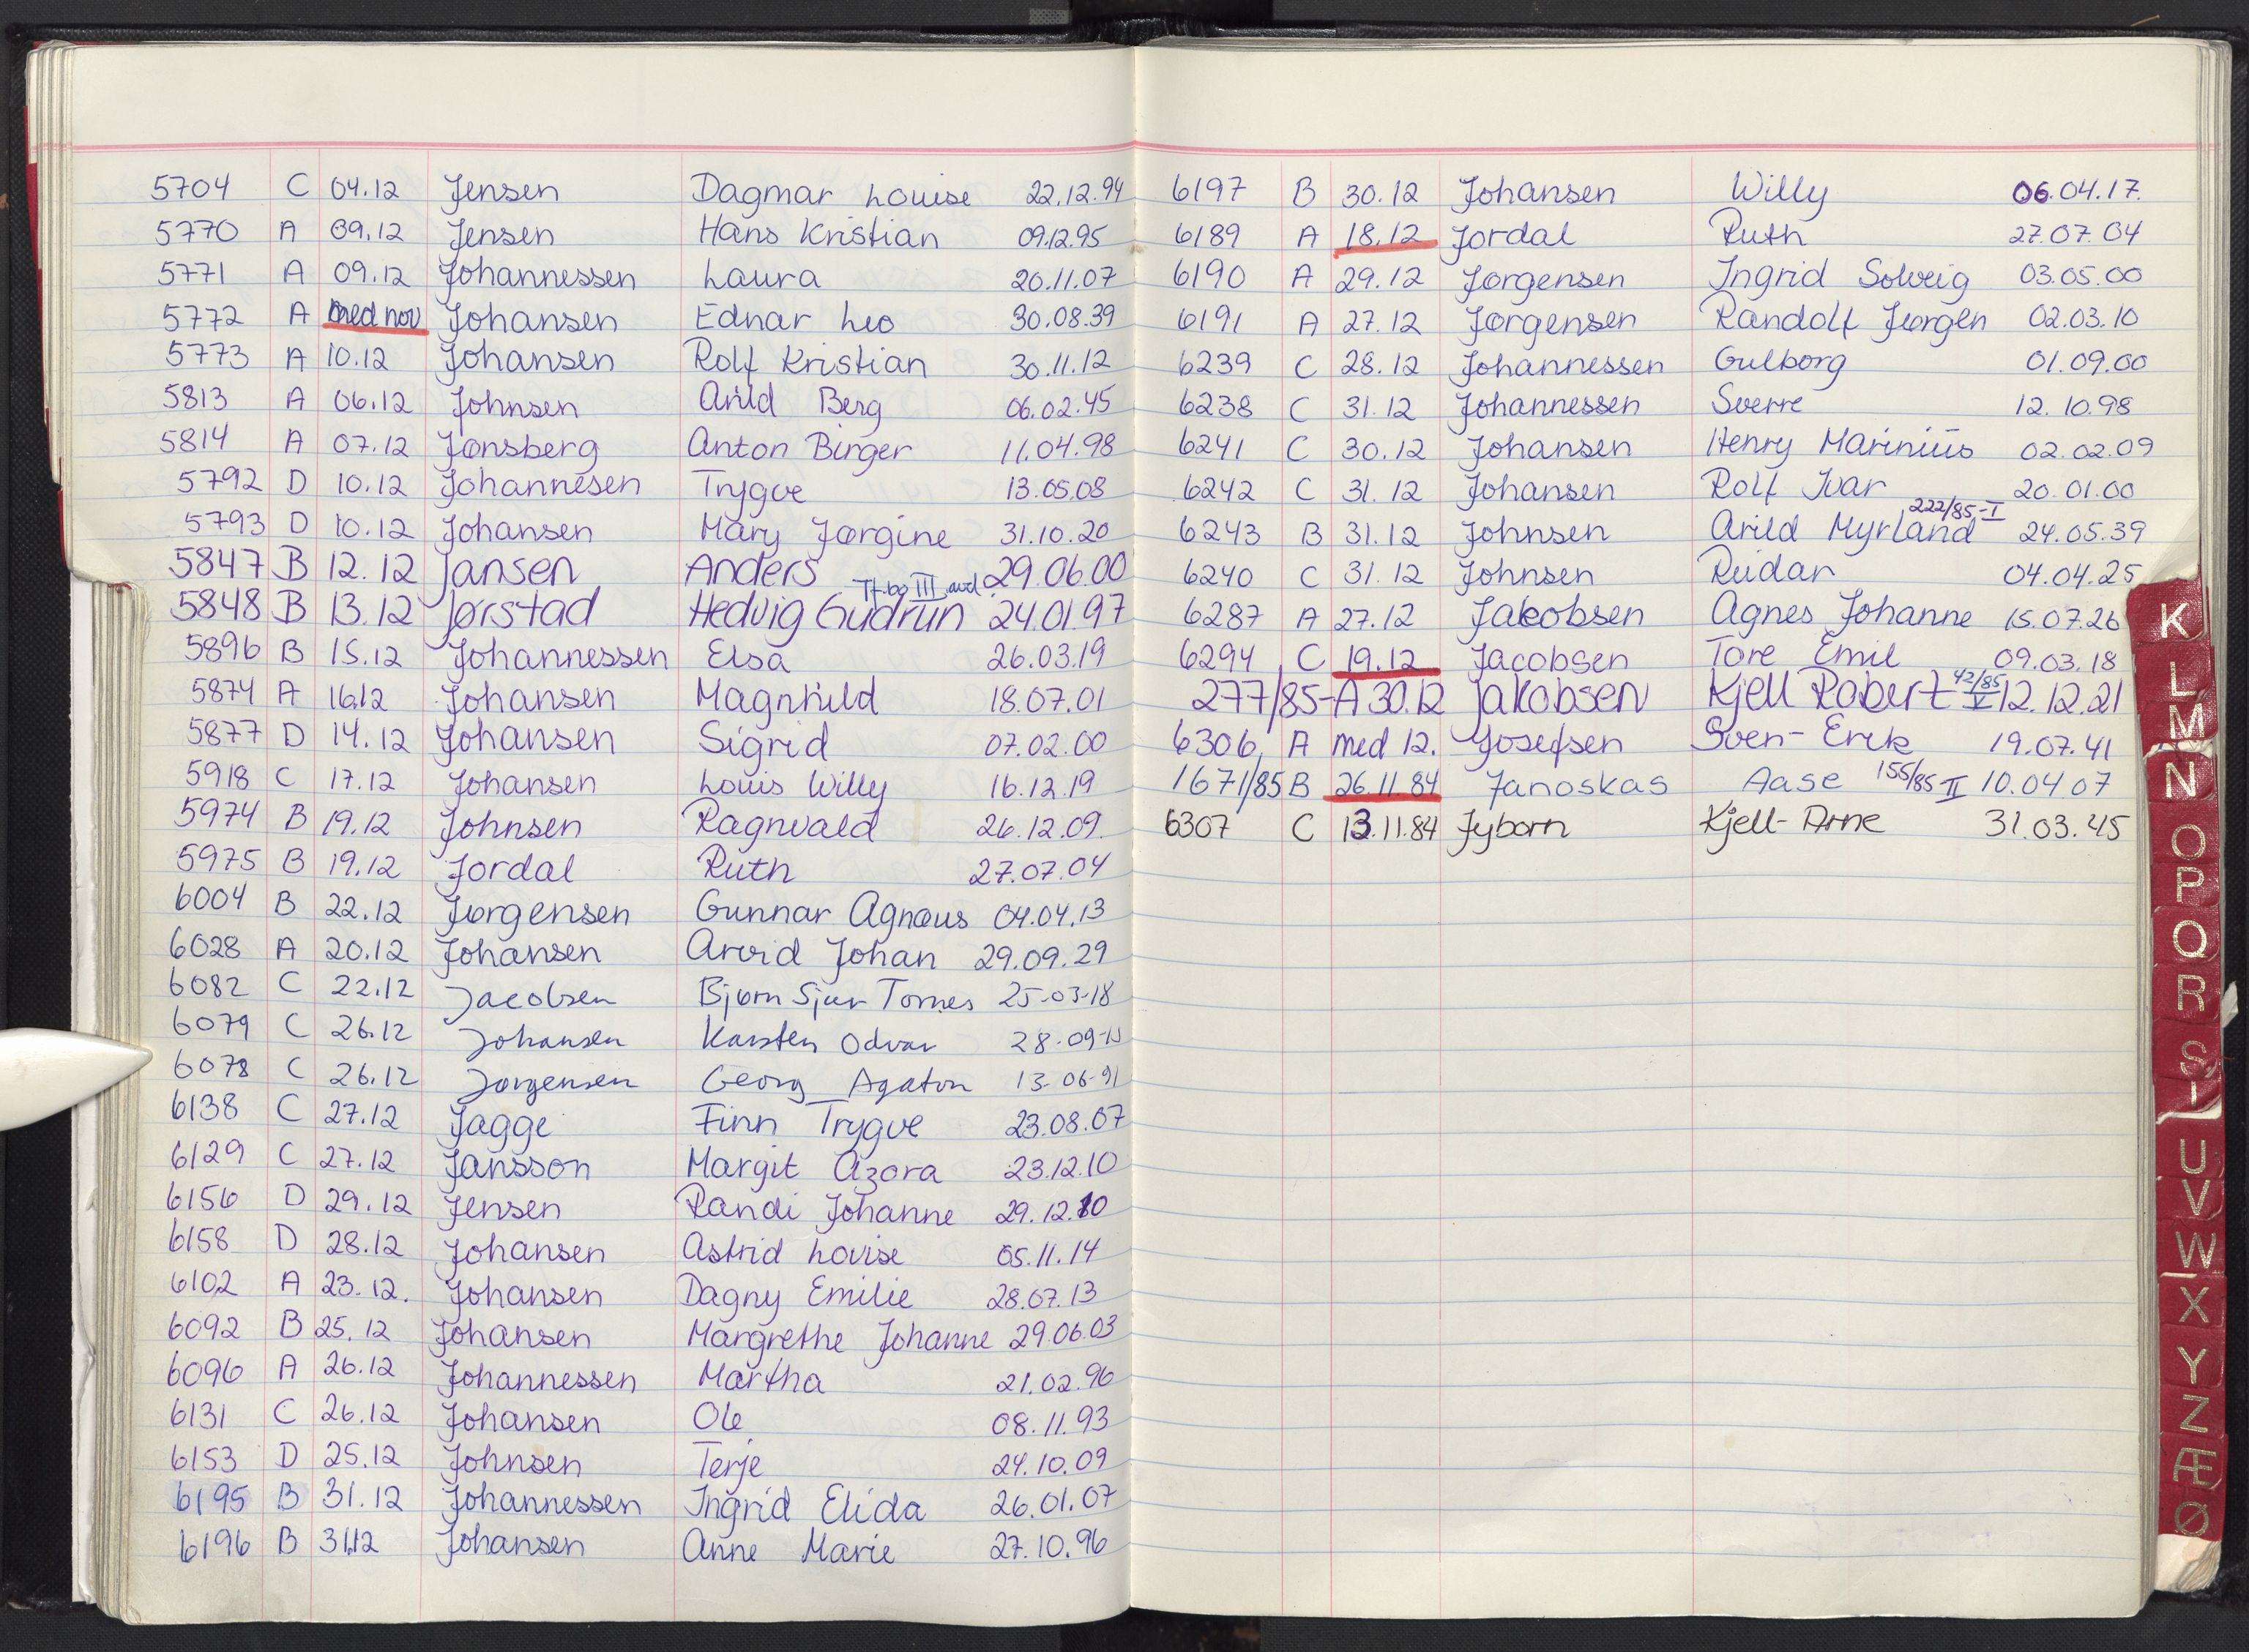 5704 C 04.12 Jensen Dagmar Louise 22.12.94
5770 A 09.12 Jensen Hans Kristian 09.12.95
5771 A 09.12 Johannessen Laura 20.11.07
5772 A med nov Johansen Ednar Leo 30.08.39
5773 A 10.12 Johansen Rolf Kristian 30.11.12
5813 A 06.12 Johnsen Arild Berg 06.02.45
5814 A 07.12 Jønsberg Anton Birger 11.04.98
5792 D 10.12 Johannesen Trygve 13.05.08
5793 D 10.12 Johansen Mary Jørgine 31.10.20
5847 B 12.12 Jansen Anders 29.06.00
Tf.bo III avd
5848 B 13.12 Jørstad Hedvig Gudrun 24.01.97
5896 B 15.12 Johannessen Elsa 26.03.19
5874 A 16.12 Johansen Magnhild 18.07.01
5877 D 14.12 Johansen Sigrid 07.02.00
5918 C 17.12 Johansen Louis Willy 16.12.19
5974 B 19.12 Johnsen Ragnvald 26.12.09.
5975 B 19.12 Jordal Ruth 27.07.04
6004 B 22.12 Jørgensen Gunnar Agnæus 04.04.13
6028 A 20.12 Johansen Arvid Johan 29.09.29
6082 C 22.12 Jacobsen Bjørn Sjur Tornes 25-03-18
6079 C 26.12 Johansen Karsten Odvar 28-09-
6078 C 26.12 Jørgensen Georg Agaton 13-06-91
6138 C 27.12 Jagge Finn Trygve 23.08.07
6129 C 27.12 Jansson Margit Azora 23.12.10
6156 D 29.12 Jensen Randi Johanne 29.12.10
6158 D 28.12 Johansen Astrid Lovise 05.11.14
6102 A 23.12. Johansen Dagny Emilie 28.07.13
6092 B 25.12 Johansen Margrethe Johanne 29.06.03
6096 A 26.12 Johannessen Martha 21.02.96
6131 C 26.12 Johansen Ole 08.11.93
6153 D 25.12 Johnsen Terje 24.10.09
6195 B 31.12 Johannessen Ingrid Elida 26.01.07
6196 B 31.12 Johansen Anne Marie 27.10.96
6197 B 30.12 Johansen Willy 06.04.17.
6189 A 18.12 Jordal Ruth 27.07.04
6190 A 29.12 Jørgensen Ingrid Solveig 03.05.00
6191 A 27.12 Jørgensen Randolf Jørgen 02.03.10
6239 C 28.12 Johannessen Gulborg 01.09.00
6238 C 31.12 Johannessen Sverre 12.10.98
6241 C 30.12 Johansen Henry Marinius 02.02.09
6242 C 31.12 Johansen Rolf Ivar 20.01.00
222/85-I
6243 B 31.12 Johnsen Arild Myrland 24.05.39
6240 C 31.12 Johnsen Reidar 04.04.25
6287 A 27.12 Jakobsen Agnes Johanne 15.07.26
6294 C 19.12 Jacobsen Tore Emil 09.03.18
277/85-A 30.12 Jakobsen Kjell Robert 42/85 V 12.12.21
6306 A med 12. Josefsen Sven-Erik 19.07.41
1671/85 B 26.11.84 Janoskas Aase 155/85 II 10.04 07
6307 C 13.11.84 Jyborn Kjell-Arne 31.03.45
K
L
M
N
O
P
Q
R
S
T
U
V
W
X
Y
Z
Æ
Ø